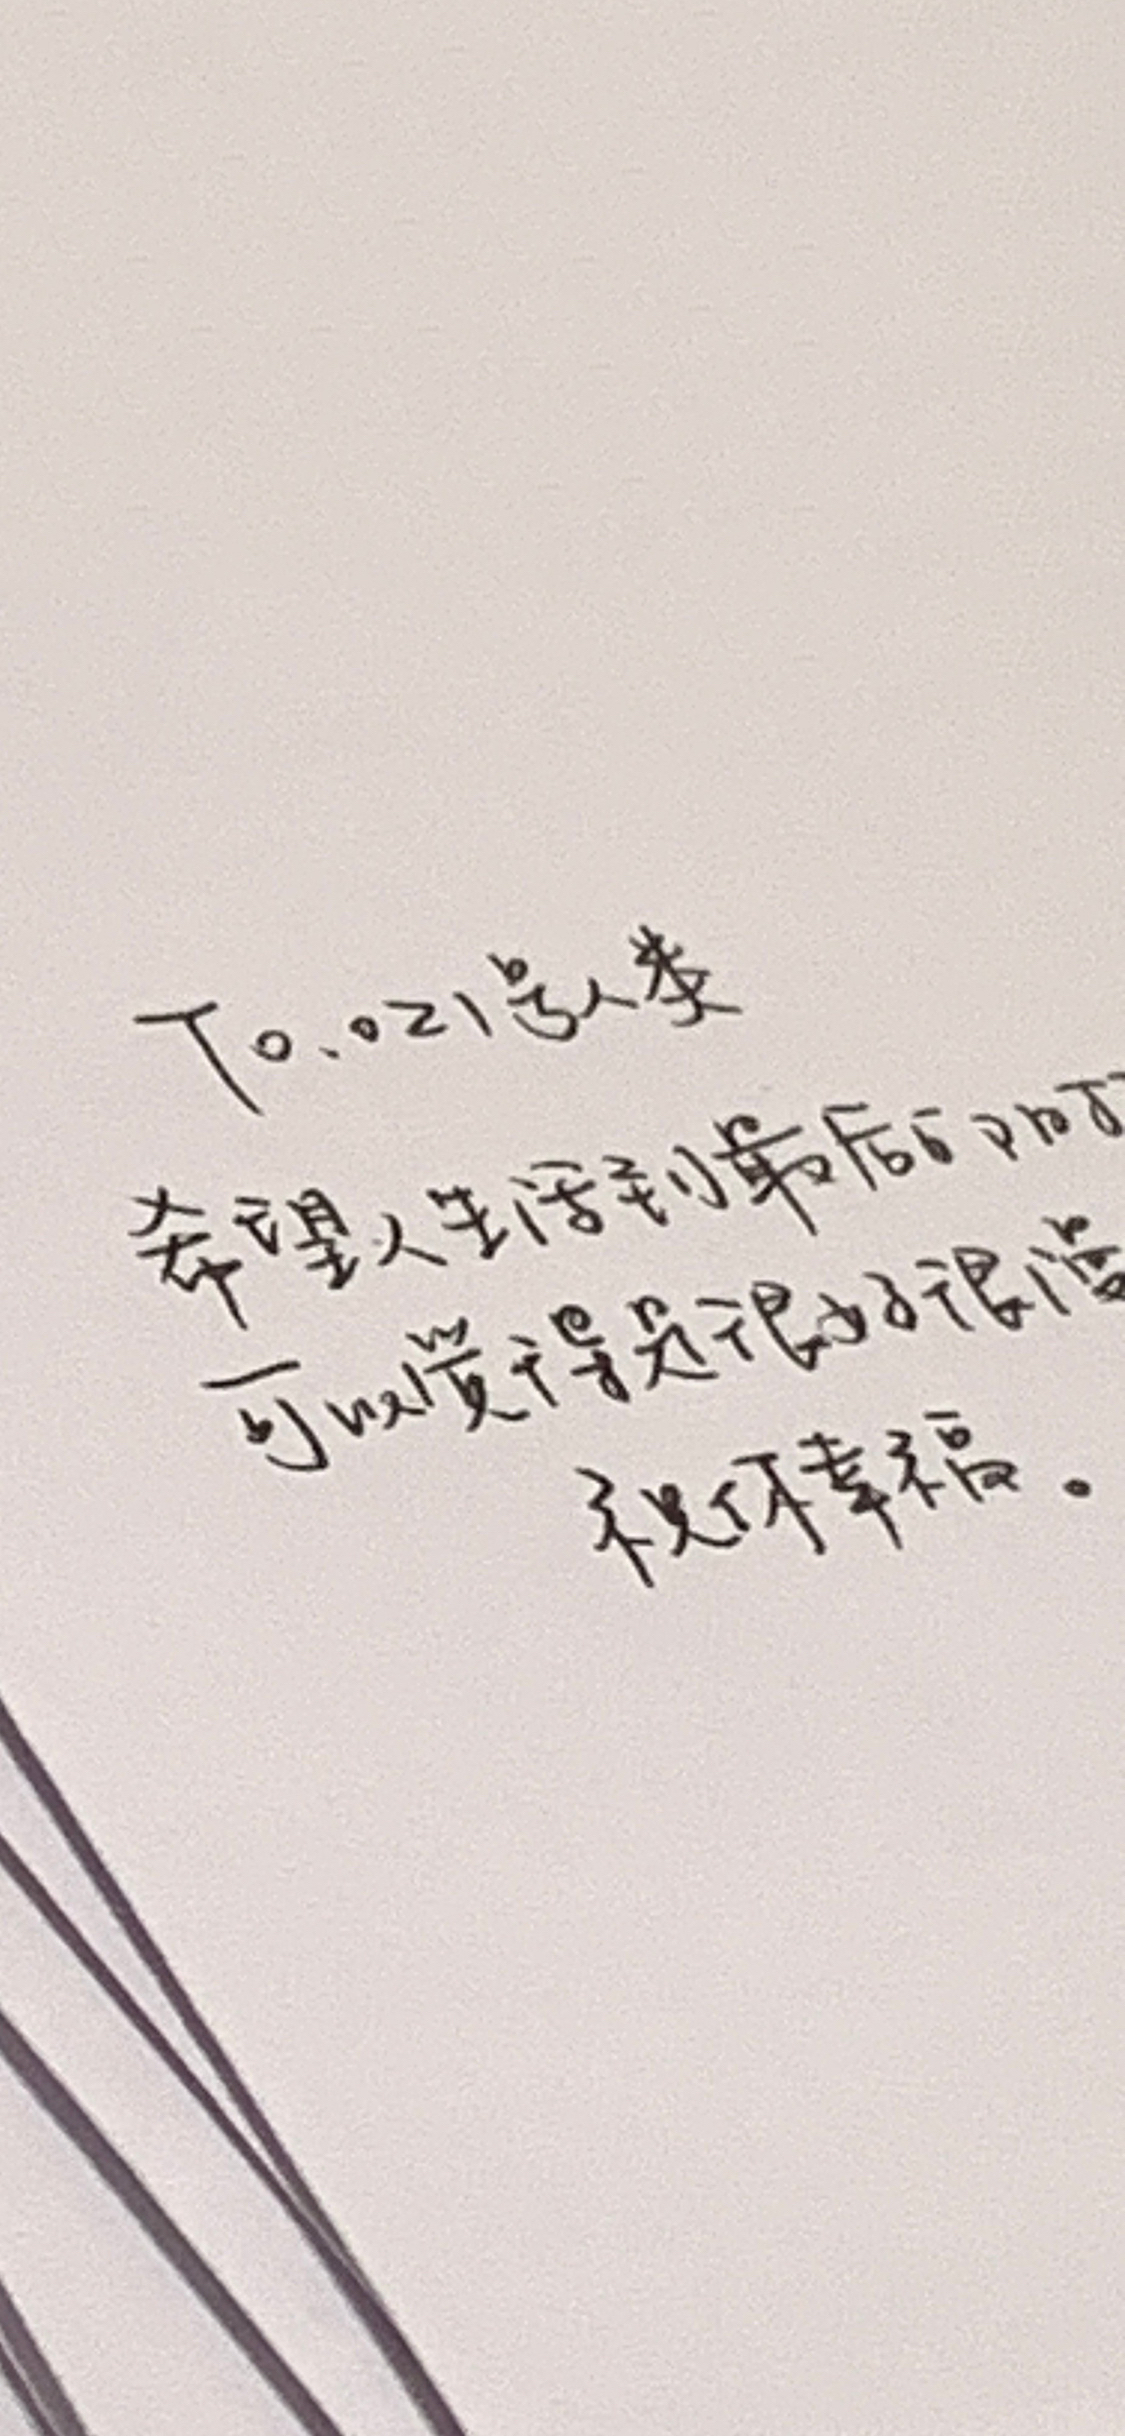 To.021号人类
希望人生活到最后的
可以觉得是很好很
祝你幸福。